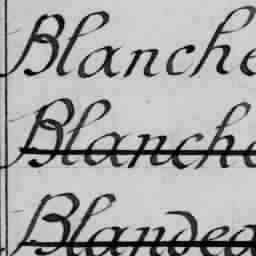 Blanche
Blanche
Blandea